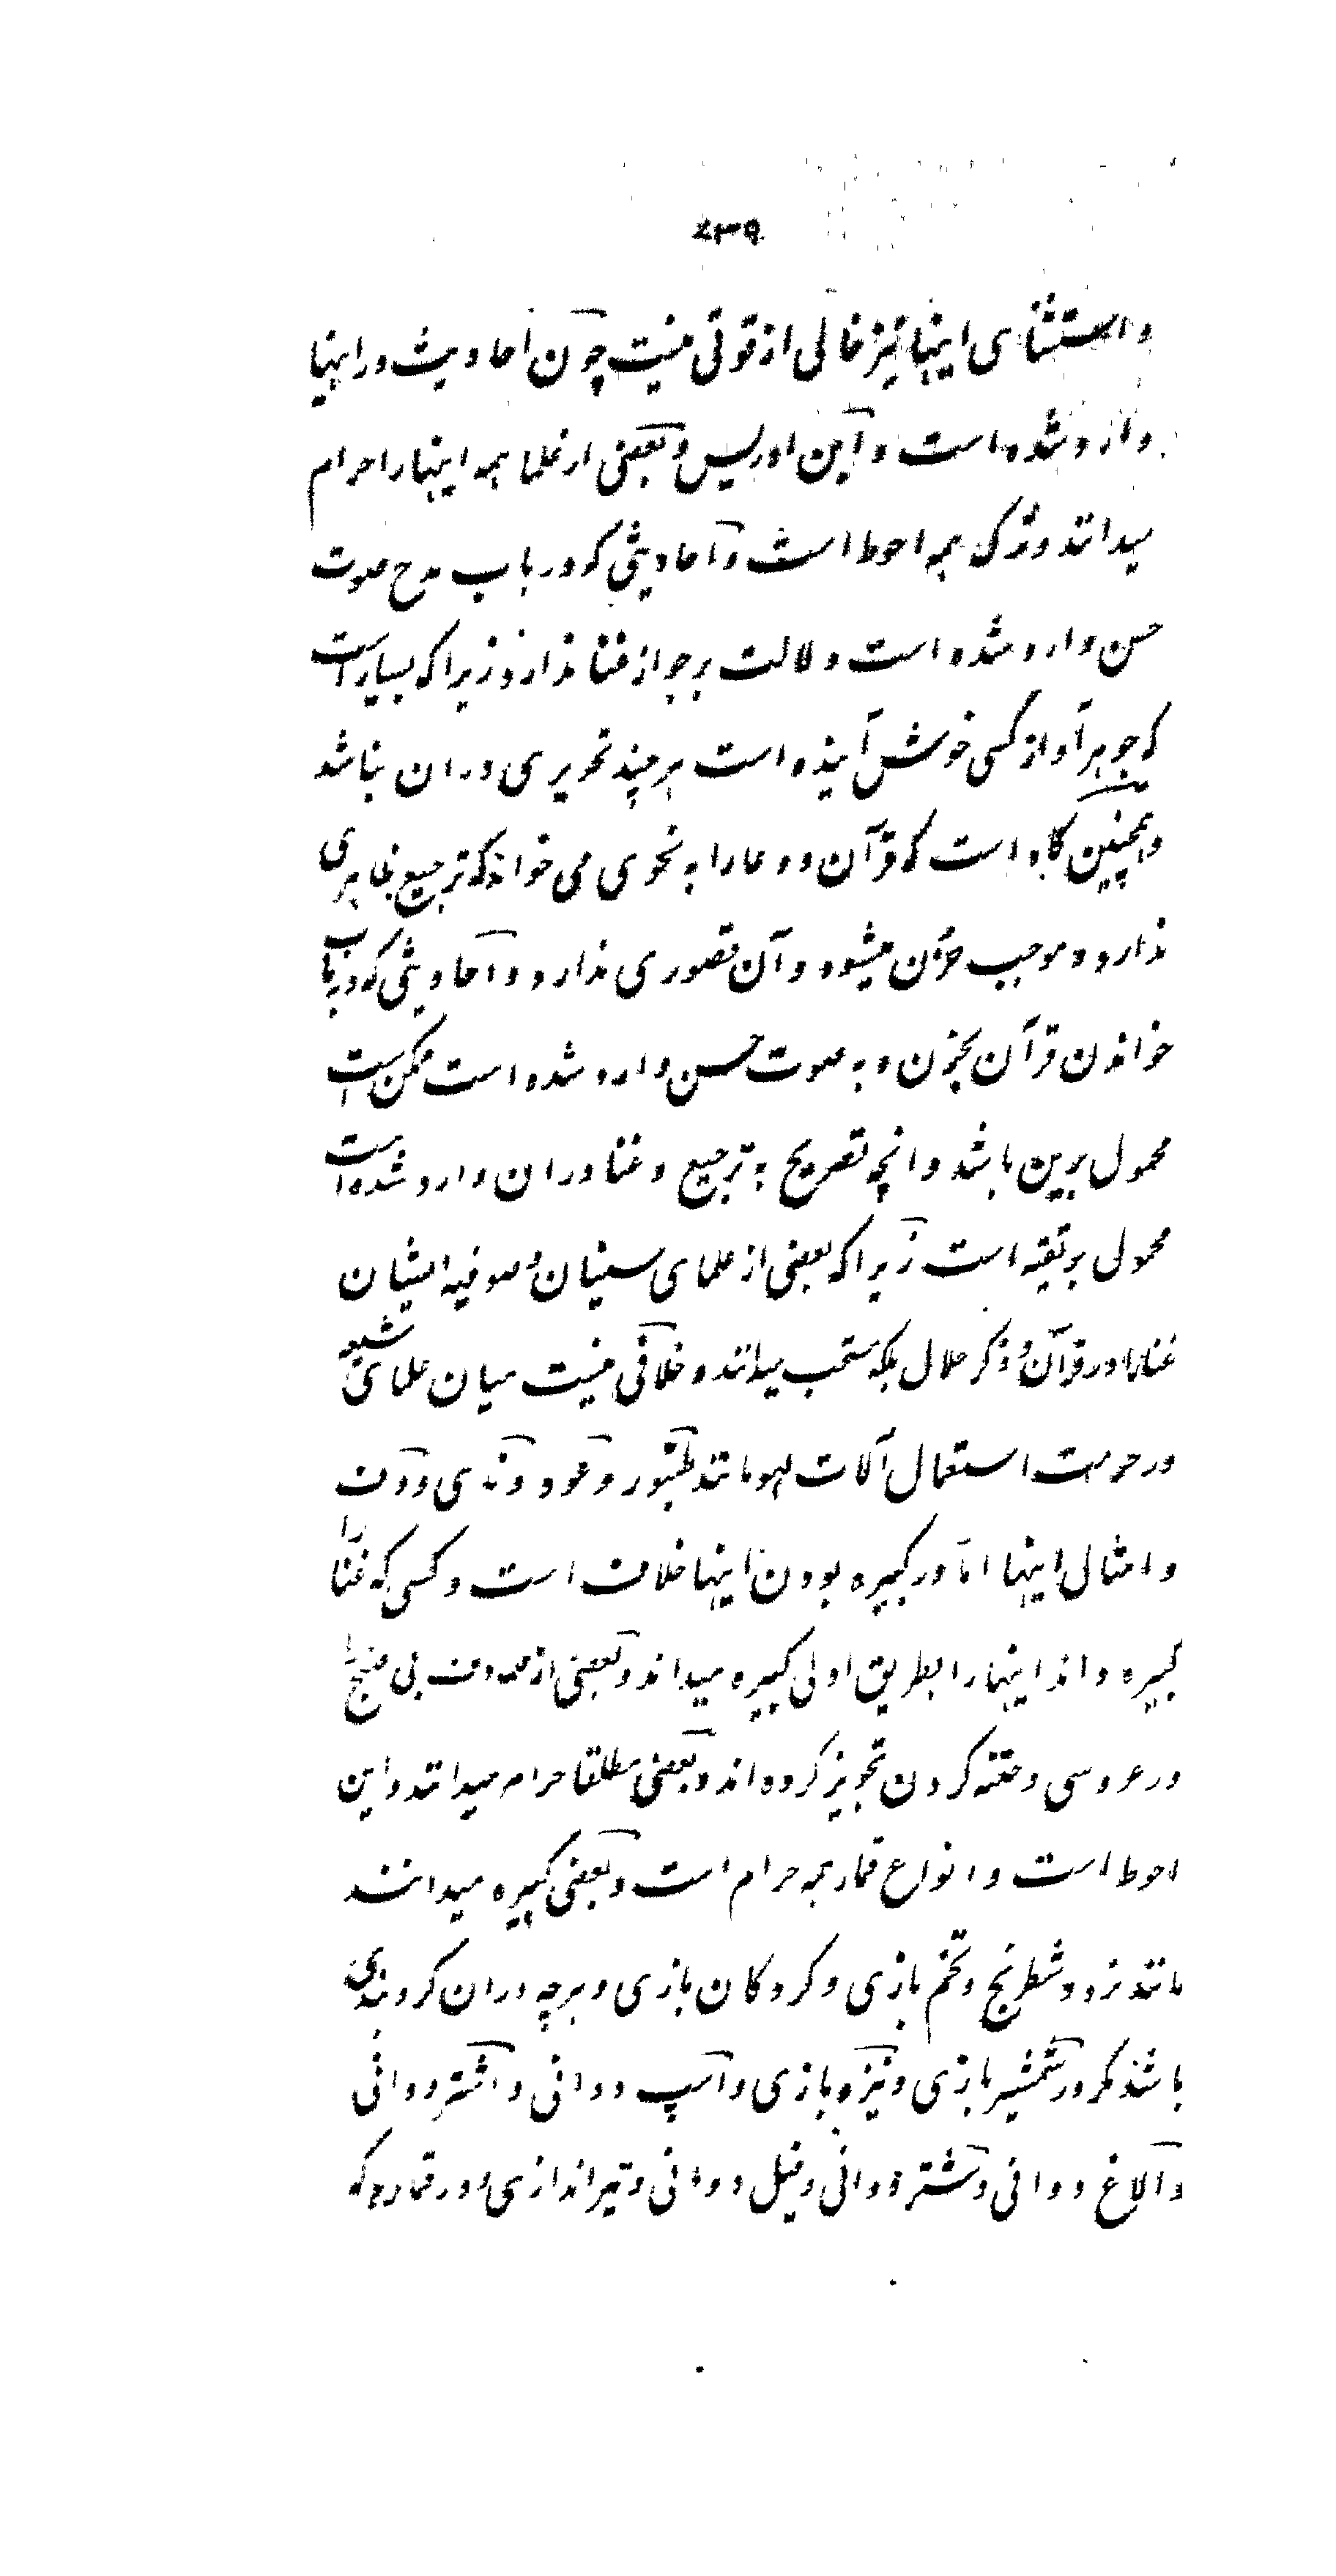 ۲۳۹
و استثنای اینها نیز خالی از قوتی نیست چون احادیث در اینها
وارد شده است و ابن ادریس و بعضی از علما همه اینها را حرام
میدانند و ترک همه احوط است و احادیثی که در باب مدح صوت
حسن وارد شده است دلالت بر جواز غنا ندارد زیرا که بسیار است
که جوهر آواز کسی خوش آینده است هر چند تحریری در ان نباشد
و همچنین گاه است که قرآن و دعا را به نحوی می خواند که ترجیع ظاهری
ندارد و موجب حزن میشود و آن قصوری ندارد و احادیثی که در باب
خواندن قرآن بحزن و به صوت حسن وارد شده است ممکن است
محمول برین باشد و انچه تصریح به ترجیع و غنا در ان وارد شده است
محمول بر تقیه است زیرا که بعضی از علمای سنیان و صوفیه ایشان
غنا را در قرآن و ذکر حلال بلکه مستحب میدانند و خلافی نیست میان علمای شیعه
در حرمت استعمال آلات لهو مانند طنبور و عود و نی و دف
و امثال اینها اما در کبیره بودن اینها خلاف است و کسی که غنا را
کبیره داند اینها را بطریق اولی کبیره میداند و بعضی از صدوف بی صنج را
در عروسی و ختنه کردن تجویز کرده اند و بعضی مطلقا حرام میدانند و این
احوط است و انواع قمار همه حرام است و بعضی کبیره میدانند
مانند نرد و شطرنج و تخم بازی و کردکان بازی و هر چه در ان کروبندی
باشد مکر در شمشیر بازی و نیزه بازی و اسب دوانی و استر دوانی
و الاغ دوانی و شتر دوانی و فیل دوانی و تیر اندازی و در قماری که